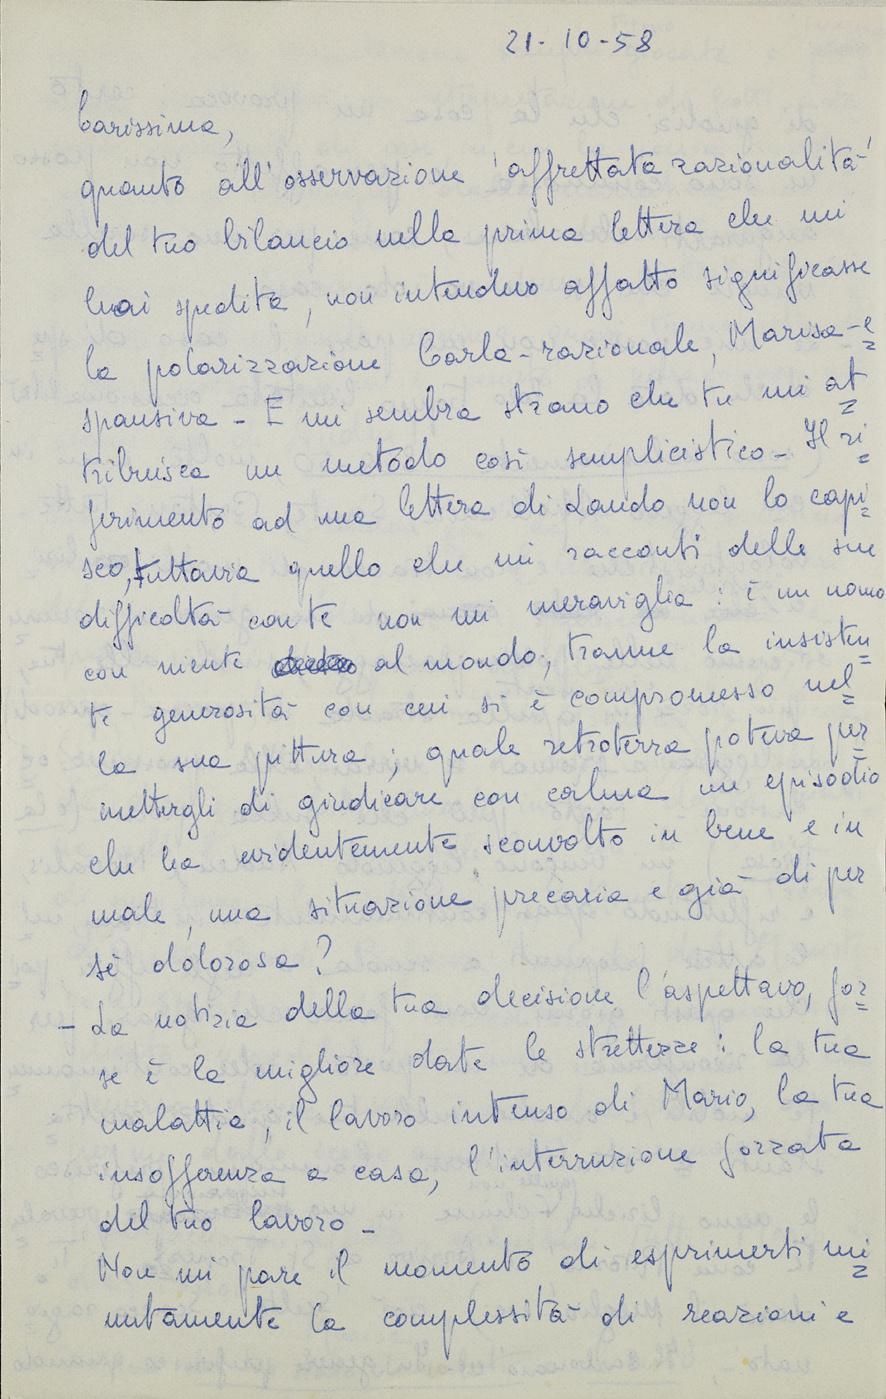 21-10-58
Carissima,
quanto all'osservazione 'affrettata razionalità'
del tuo bilancio nella prima lettera che mi
hai spedita, non intendevo affatto significasse
la polarizzazione Carla-razionale, Marisa-e=
spansiva - E mi sembra strano che tu mi at=
tribuisca un metodo così semplicistico - Il ri=
ferimento ad una lettera di Lando non lo capi=
sco, tuttavia quello che mi racconti delle sue
difficoltà con te non mi meraviglia: è un uomo
con niente al mondo, tranne la insisten=
te generosità con cui si è compromesso nel=
la sua pittura; quale retroterra poteva per=
mettergli di giudicare con calma un episodio
che ha evidentemente sconvolto in bene e in
male, una situazione precaria e già di per
sé dolorosa?
- La notizia della tua decisione l'aspettavo, for=
se è la migliore date le strettezze: la tua
malattia, il lavoro intenso di Mario, la tua
insofferenza a casa, l'interruzione forzata
del tuo lavoro -
Non mi pare il momento di esprimerti mi=
nutamente la complessità di reazioni e